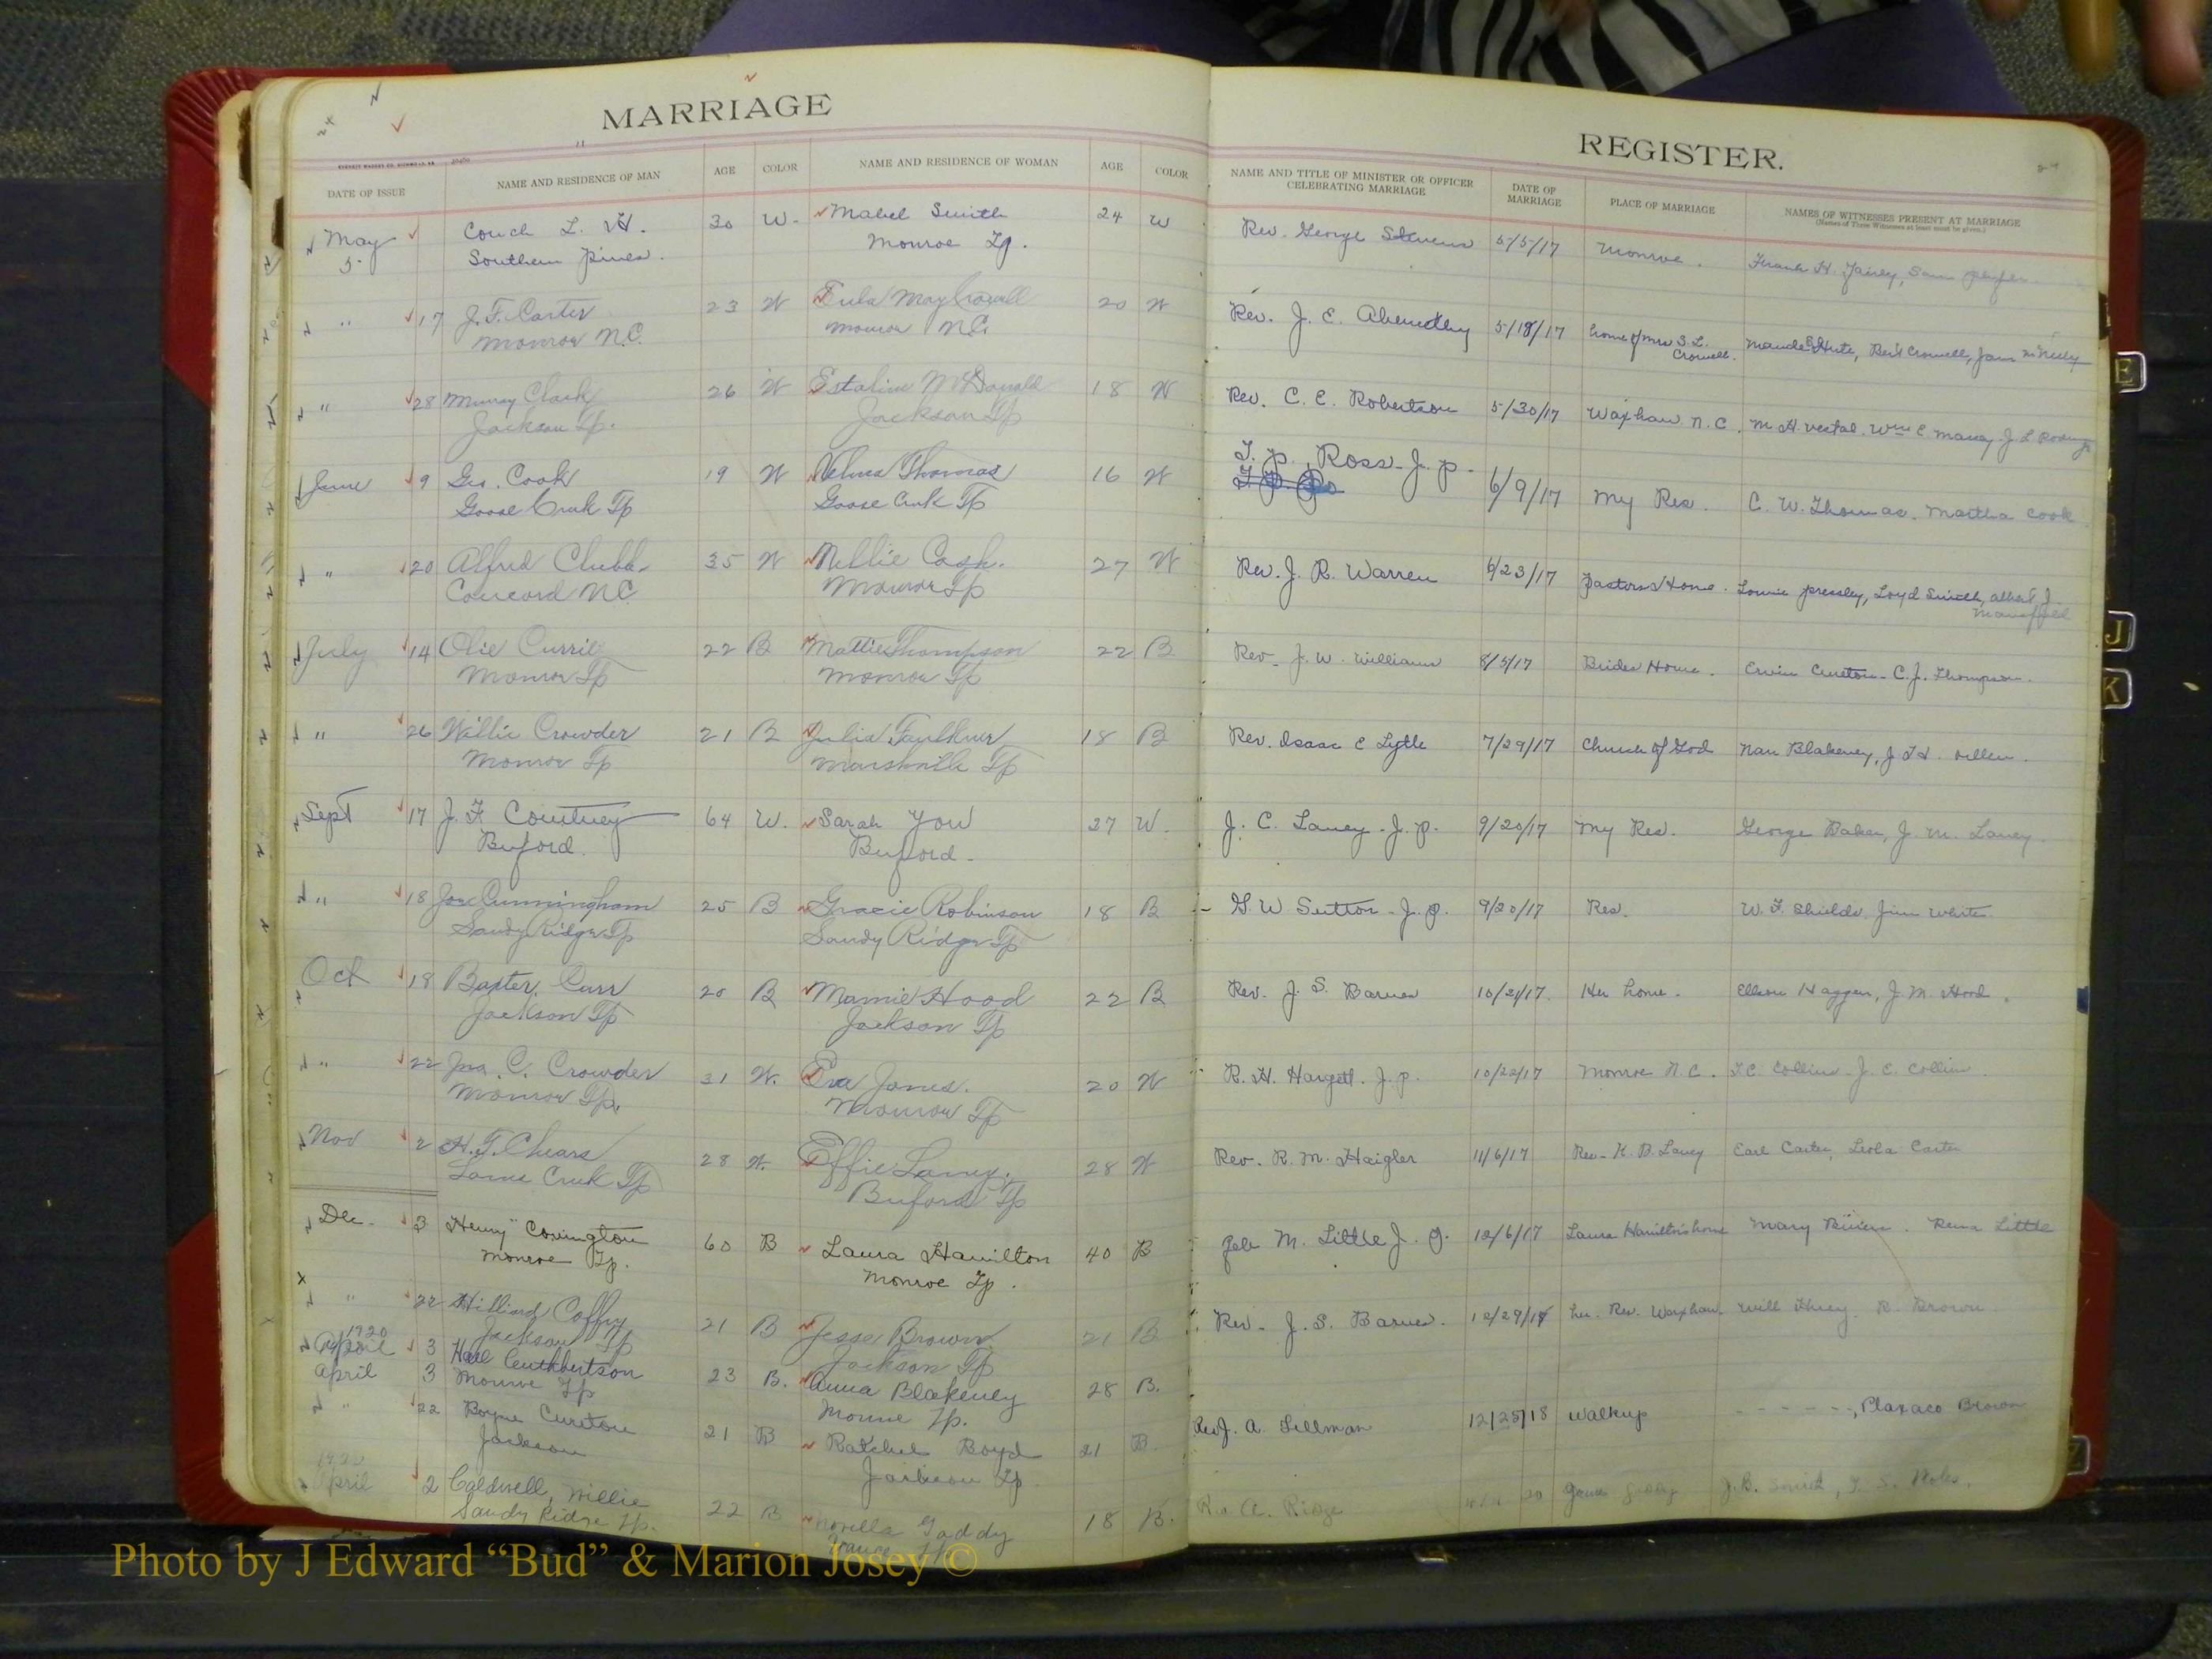 MARRIAGE
REGISTER.
DATE OF ISSUE NAME AND RESIDENCE OF MAN AGE COLOR NAME AND RESIDENCE OF WOMAN AGE COLOR NAME AND TITLE OF MINISTER OR OFFICER CELEBRATING MARRIAGE DATE OF MARRIAGE PLACE OF MARRIAGE NAMES OF WITNESSES PRESENT AT MARRIAGE
(Names of Three Witnesses at least must be given.)
May Couch L. H. 30 W. Mabel Smith 24 W Rev. George Stevens 5/5/17 Monroe. Frank H. Fairley, Sam
5 Southern Pines. Monroe Tp.
" 17 J. F. Carter 23 W Eula May Crowell 20 W Rev. J. E. Abernethy 5/18/17 home of Mrs S. L. Crowell. Maude Shute, Ben Crowell, Jam McNeely
Monroe N.C. Monroe N.C.
" 28 Murray Clark 26 W McDonald 18 W Rev. C. E. Robertson 5/30/17 Waxhaw N.C. M. H. Vestal. Wm E. Massey J. L.
Jackson Tp. Jackson Tp
June 9 Geo. Cook 19 W Velma Thomas 16 W T. P. Ross J. P. 6/9/17 My Res. C. W. Thomas. Martha Cook
Goose Creek Tp Goose Creek Tp
" 20 Alfred Chubb 35 W Nellie Cash. 27 W Rev. J. R. Warren 6/23/17 Pastors Home. Lonnie Pressley, Loyd Smith, Albert J.
Concord N.C. Monroe Tp
July 14 Olie 22 B Mattie Thompson 22 B Rev. J. W. Williams 8/5/17 Brides Home. Ervin Cureton - C. J. Thompson.
Monroe Tp Monroe Tp
" 26 Willie Crowder 21 B Julia Faulkner 18 B Rev. Isaac E Lytle 7/29/17 Church of God Nan Blakeney, J
Monroe Tp Marshville Tp
Sept 17 J. F. Courtney 64 W. Sarah You 27 W. J. C. Laney - J. P. 9/20/17 My Res. George Baker, J. M. Laney.
Buford. Buford.
" 18 Joe Cunningham 25 B Gracie Robinson 18 B G. W Sutton - J. P. 9/20/17 Res. W. F. Shields, Jim White
Sandy Ridge Tp Sandy Ridge Tp
Oct 18 Baxter 20 B Mamie Hood 22 B Rev. J. S. Barnes 10/21/17. Her home. J. M. Hood.
Jackson Tp Jackson Tp
" 22 Jas. C. Crowder 21 W. Eva James. 20 W R. H. Hargett. J. P. 10/22/17 Monroe N.C. T.C. Collins - J. E. Collins
Monroe Tp. Monroe Tp
Nov 2 H. F. Chears 28 W. Effie Laney. 28 W Rev. R. M. Haigler 11/6/17 Res - K. B. Laney Earl Carter, Leola Carter
Lanes Creek Tp Buford Tp
Dec. 3 Henry Covington 60 B Laura Hamilton 40 B M. Little J. P. 12/6/17 Laura Hamiltons home Mary Little
Monroe Tp. Monroe Tp.
" 22 Hilliard Coffey 21 B Jesse Brown 21 B Rev. J. S. Barnes. 12/29/17 her. Res. Waxhaw. Will Huey. R. Brown
Jackson Tp Jackson Tp
1920
April 3 Hall Cuthbertson 23 B. Anna Blakeney 28 B.
April 3 Monroe Tp Monroe Tp.
" 22 Boyce Cureton 21 B Ratchel Boyd 21 B Rev J. A. Tillman 12/25/18 Walkup - - - - - -, Plaxaco Brown
Jackson Jackson Tp
1920
April 2 Caldwell, Willie 22 B Novella Gaddy 18 B. Rev A. Ridge 20 James Gaddy J. B. Smith, T. S.
Sandy Ridge Tp. Vance Tp.
Photo by J Edward “Bud” & Marion Josey ©